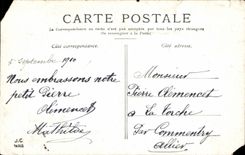 CARTE POSTALE
La Correspondance au recto n'est pas acceptée par tous les pays étrangers
(Se renseigner à la Poste)
Côté correspondance.
Côté adresse.
5 Septembre 1910
Nous embrassons notre
petit Pierre
Clemencet
Mathilde
Monsieur
Pierre Clemencet
à La
Par Commentry
Allier